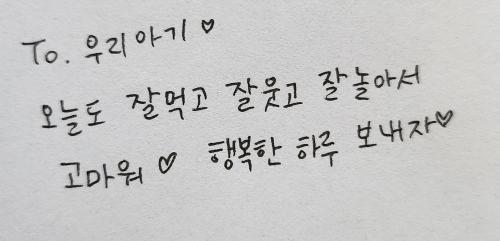 To. 우리아기 ♡
오늘도 잘먹고 잘웃고 잘놀아서
고마워 ♡ 행복한 하루 보내자♡